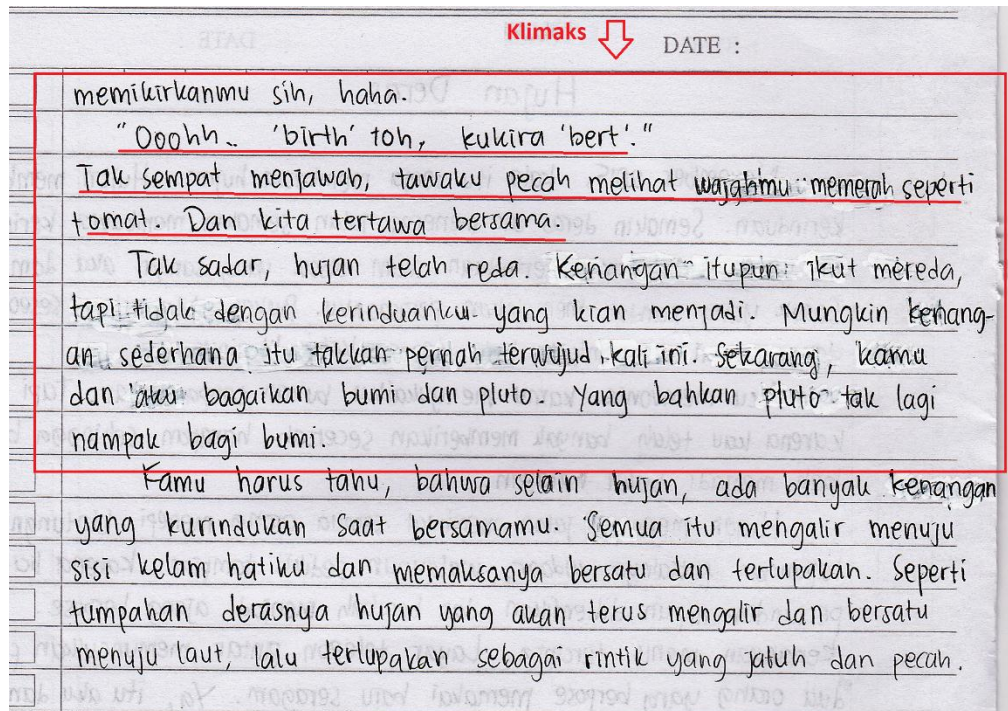 Klimaks
DATE :
memikirkanmu sih, haha.
"Ooohh.. 'birth' toh, kukira 'bert'."
Tak sempat menjawab, tawaku pecah melihat wajahmu memerah seperti
tomat. Dan kita tertawa bersama.
Tak sadar, hujan telah reda. Kenangan itupun ikut mereda,
tapi tidak dengan kerinduanku yang kian menjadi. Mungkin kenang-
an sederhana itu takkan pernah terwujud kali ini. Sekarang, kamu
dan aku bagaikan bumi dan pluto. Yang bahkan pluto tak lagi
nampak bagi bumi.
Kamu harus tahu, bahwa selain hujan, ada banyak kenangan
yang kurindukan saat bersamamu. Semua itu mengalir menuju
sisi kelam hatiku dan memaksanya bersatu dan terlupakan. Seperti
tumpahan derasnya hujan yang akan terus mengalir dan bersatu
menuju laut, lalu terlupakan sebagai rintik yang jatuh dan pecah.